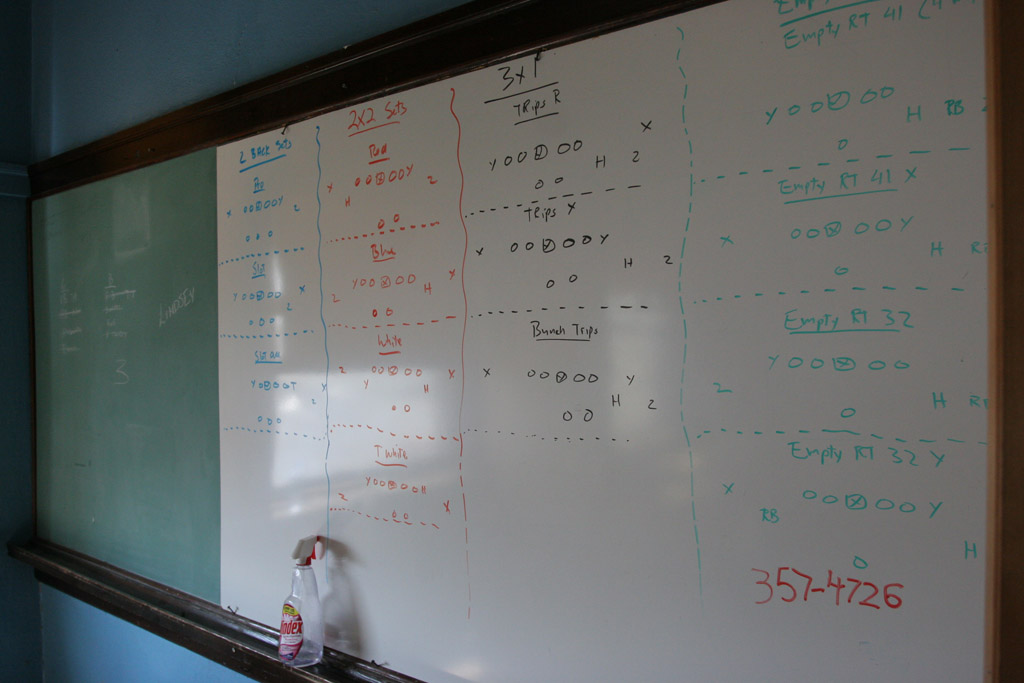 LINDSEY
3
2 Back Sets
Pro
X OO⊗OOY 2
O O O
Slot
YOO⊗OO X
2
O O O
YOO⊗OOT Y
2
O O O
2x2 Sets
Red
X OO⊗OOY 2
H
O O
Blue
YOO⊗OO X
2 H
O O
White
2 OO⊗OO X
Y H
O O
T White
YOO⊗OOH
2 X
O O
3x1
TRips R
X
YOO⊗OO H 2
O O
TRips X
X OO⊗OOY
H 2
O O
Bunch Trips
X OO⊗OO Y
H 2
O O
Empty RT 41
YOO⊗OO H RB 2
O
Empty RT 41 X
X OO⊗OOY
H
O
Empty RT 32
YOO⊗OO
2 H RB
O
Empty RT 32 Y
X OO⊗OO Y
RB
H
O
357-4726
Windex